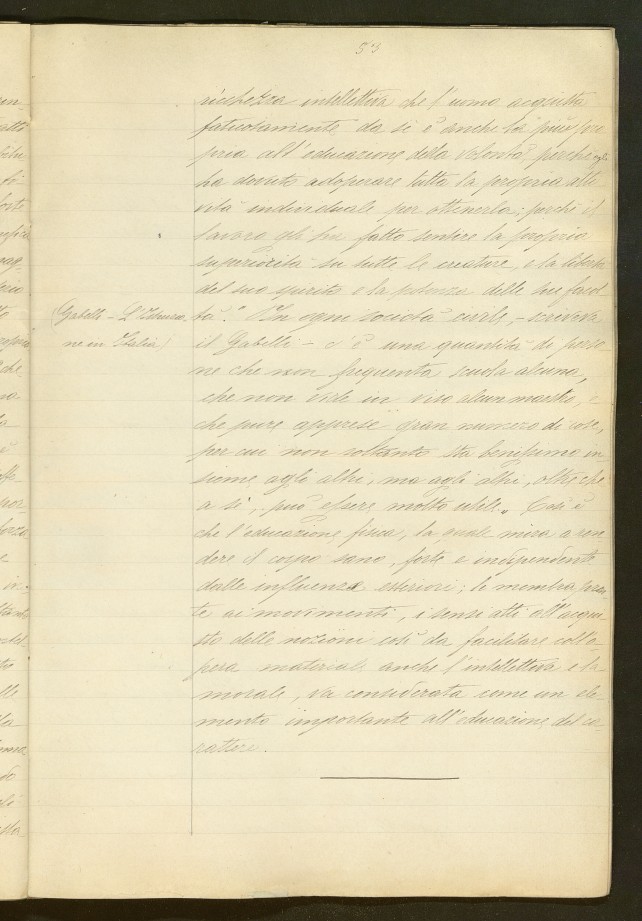 53
ricchezza intellettiva che l'uomo acquista
faticosamente da sè è anche la più pro
pria all'educazione della volontà perchè egli
ha dovuto adoperare tutta la propria atti
vità individuale per ottenerla; perchè il
lavoro gli ha fatto sentire la propria
superiorità su tutte le creature, e la libertà
del suo spirito e la potenza delle sue facol
(Gabelli - L'Istruzio
ne in Italia)
tà." In ogni società civile, - scriveva
il Gabelli - c'è una quantità di perso
ne che non frequenta scuola alcuna,
che non vide in viso alcun maestro, e
che pure apprese gran numero di cose,
per cui non soltanto sta benissimo in
sieme agli altri, ma agli altri, oltre che
a sè, può essere molto utile„ Così è
che l'educazione fisica, la quale mira a ren
dere il corpo sano, forte e indipendente
dalle influenze esteriori; le membra
te ai movimenti, i sensi atti all'acqui
sto delle nozioni così da facilitare coll'o
pera materiale anche l'intellettiva e la
morale, va considerata come un ele-
mento importante all'educazione del ca-
rattere.